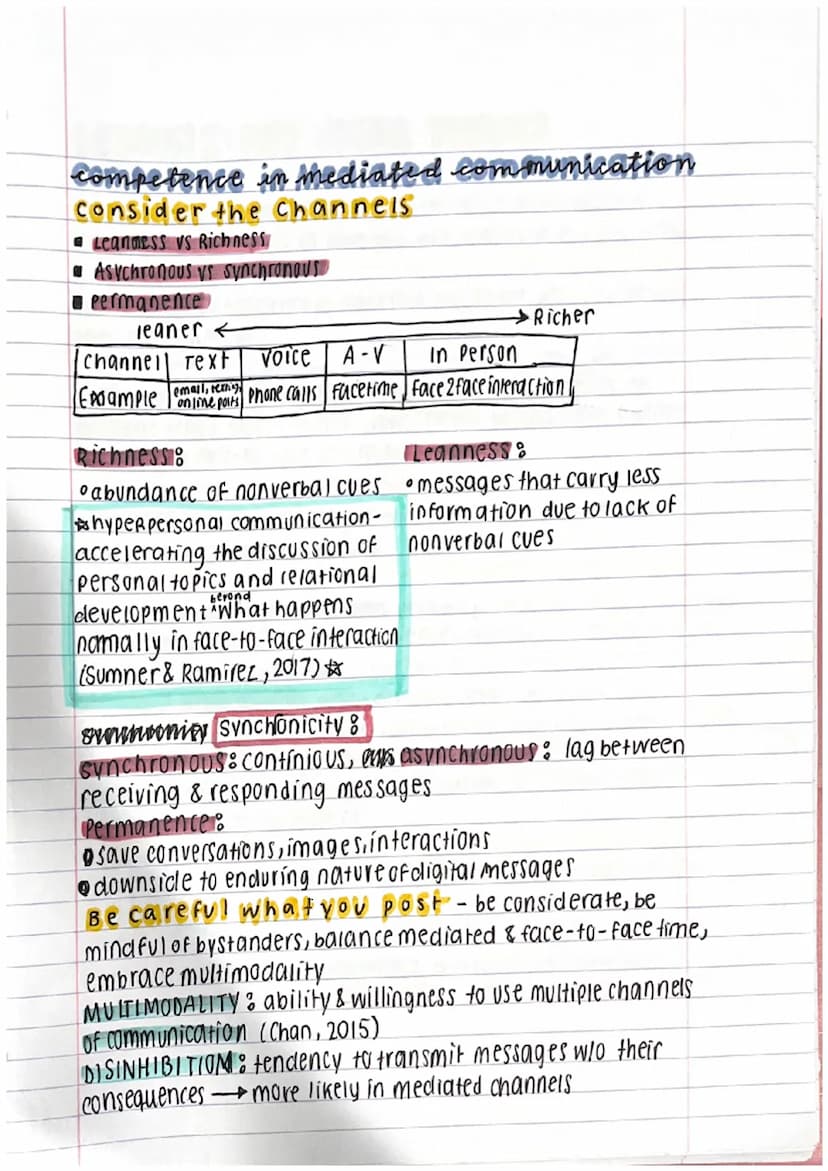 competence in mediated communication
Consider the Channels
▪ Leanness vs Richness
▪ Asychronous vs synchronous
▪ permanence
leaner ⟵⟶ Richer
Channel | Text | Voice | A-V | In Person
Example | email, online posts | Phone calls | Facetime | Face2face interaction
Richness:
•abundance of nonverbal cues
☆hyperpersonal communication-
accelerating the discussion of
personal topics and relational
development ^beyond what happens
normally in face-to-face interaction
(Sumner & Ramirez, 2017) ☆
Leanness:
•messages that carry less
information due to lack of
nonverbal cues
Synchonicity:
synchronous: continious, asynchronous: lag between
receiving & responding messages
Permanence:
•save conversations, images, interactions
•downside to enduring nature of digital messages
Be careful what you post - be considerate, be
mindful of bystanders, balance mediated & face-to-face time,
embrace multimodality
MULTIMODALITY: ability & willingness to use multiple channels
of communication (Chan, 2015)
DISINHIBITION: tendency to transmit messages w/o their
consequences → more likely in mediated channels